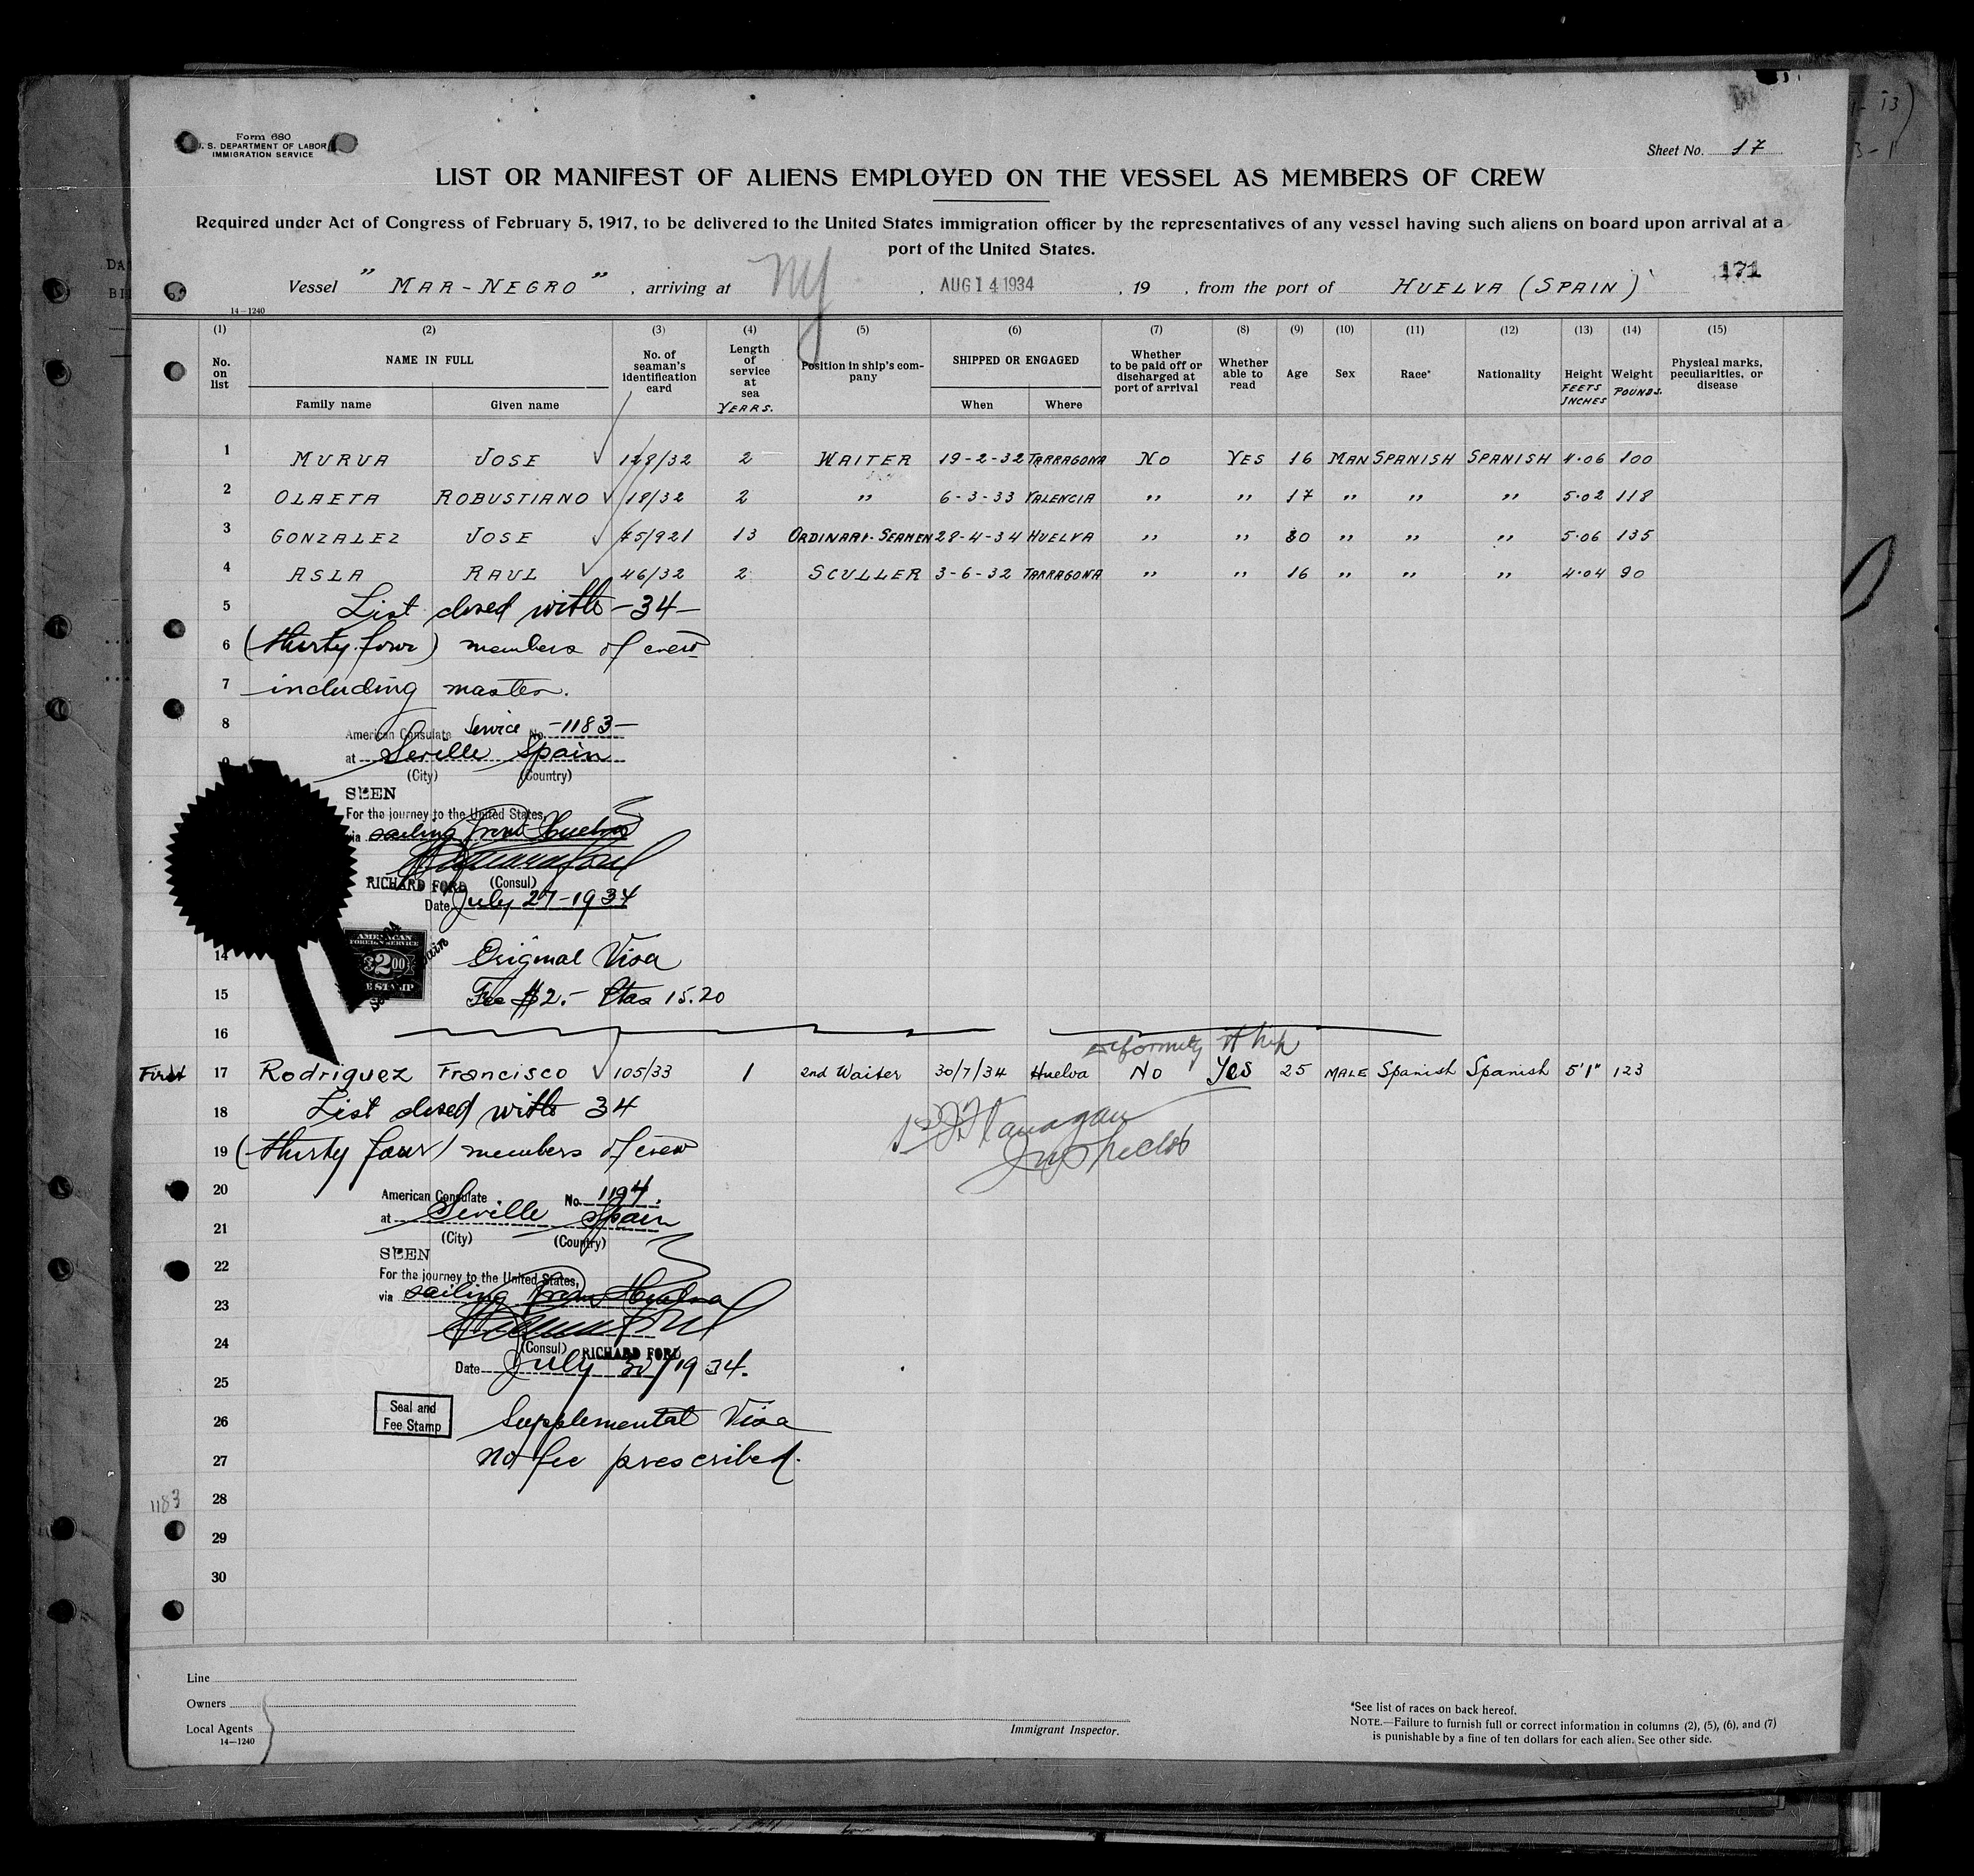 Form 680
U. S. DEPARTMENT OF LABOR
IMMIGRATION SERVICE
Sheet No. 17
LIST OR MANIFEST OF ALIENS EMPLOYED ON THE VESSEL AS MEMBERS OF CREW
Required under Act of Congress of February 5, 1917, to be delivered to the United States immigration officer by the representatives of any vessel having such aliens on board upon arrival at a
port of the United States.
171
Vessel "MAR-NEGRO", arriving at NY, AUG 14 1934, 19 , from the port of HUELVA (SPAIN)
14—1240
(1) (2) (3) (4) (5) (6) (7) (8) (9) (10) (11) (12) (13) (14) (15)
No. on list NAME IN FULL Family name Given name No. of seaman's identification card Length of service at sea YEARS. Position in ship's company SHIPPED OR ENGAGED When Where Whether to be paid off or discharged at port of arrival Whether able to read Age Sex Race* Nationality Height FEETS INCHES Weight POUNDS. Physical marks, peculiarities, or disease
1 MURUA JOSE 129/32 2 WAITER 19-2-32 TARRAGONA NO YES 16 MAN SPANISH SPANISH 4.06 100
2 OLAETA ROBUSTIANO 18/32 2 " 6-3-33 VALENCIA " " 17 " " " 5.02 118
3 GONZALEZ JOSE 75/921 13 ORDINARY-SEAMEN 28-4-34 HUELVA " " 30 " " " 5.06 135
4 ASLA RAUL 46/32 2 SCULLER 3-6-32 TARRAGONA " " 16 " " " 4.04 90
5 List closed with -34-
6 (thirty four) members of crew
7 including master.
8 American Consulate Service No. -1183-
9 at Seville Spain
(City) (Country)
SEEN
For the journey to the United States,
via sailing from Huelva
RICHARD FORD (Consul)
Date July 27-1934
AMERICAN
FOREIGN SERVICE
$2.00
FEE STAMP
14 Original Visa
15 Fee $2.- Ptas 15.20
16
deformity of hip
First 17 Rodriguez Francisco 105/33 1 2nd Waiter 30/7/34 Huelva No Yes 25 MALE Spanish Spanish 5'1" 123
18 List closed with 34
19 (thirty four) members of crew
Flanagan
Inspector
20 American Consulate No. 1194
21 at Seville Spain
(City) (Country)
SEEN
22 For the journey to the United States,
23 via sailing from Huelva
24 (Consul) RICHARD FORD
Date July 30/1934.
25
Seal and
Fee Stamp
26 Supplemental Visa
27 No fee prescribed.
1183 28
29
30
Line
Owners
Local Agents
14—1240
Immigrant Inspector.
*See list of races on back hereof.
NOTE.—Failure to furnish full or correct information in columns (2), (5), (6), and (7)
is punishable by a fine of ten dollars for each alien. See other side.